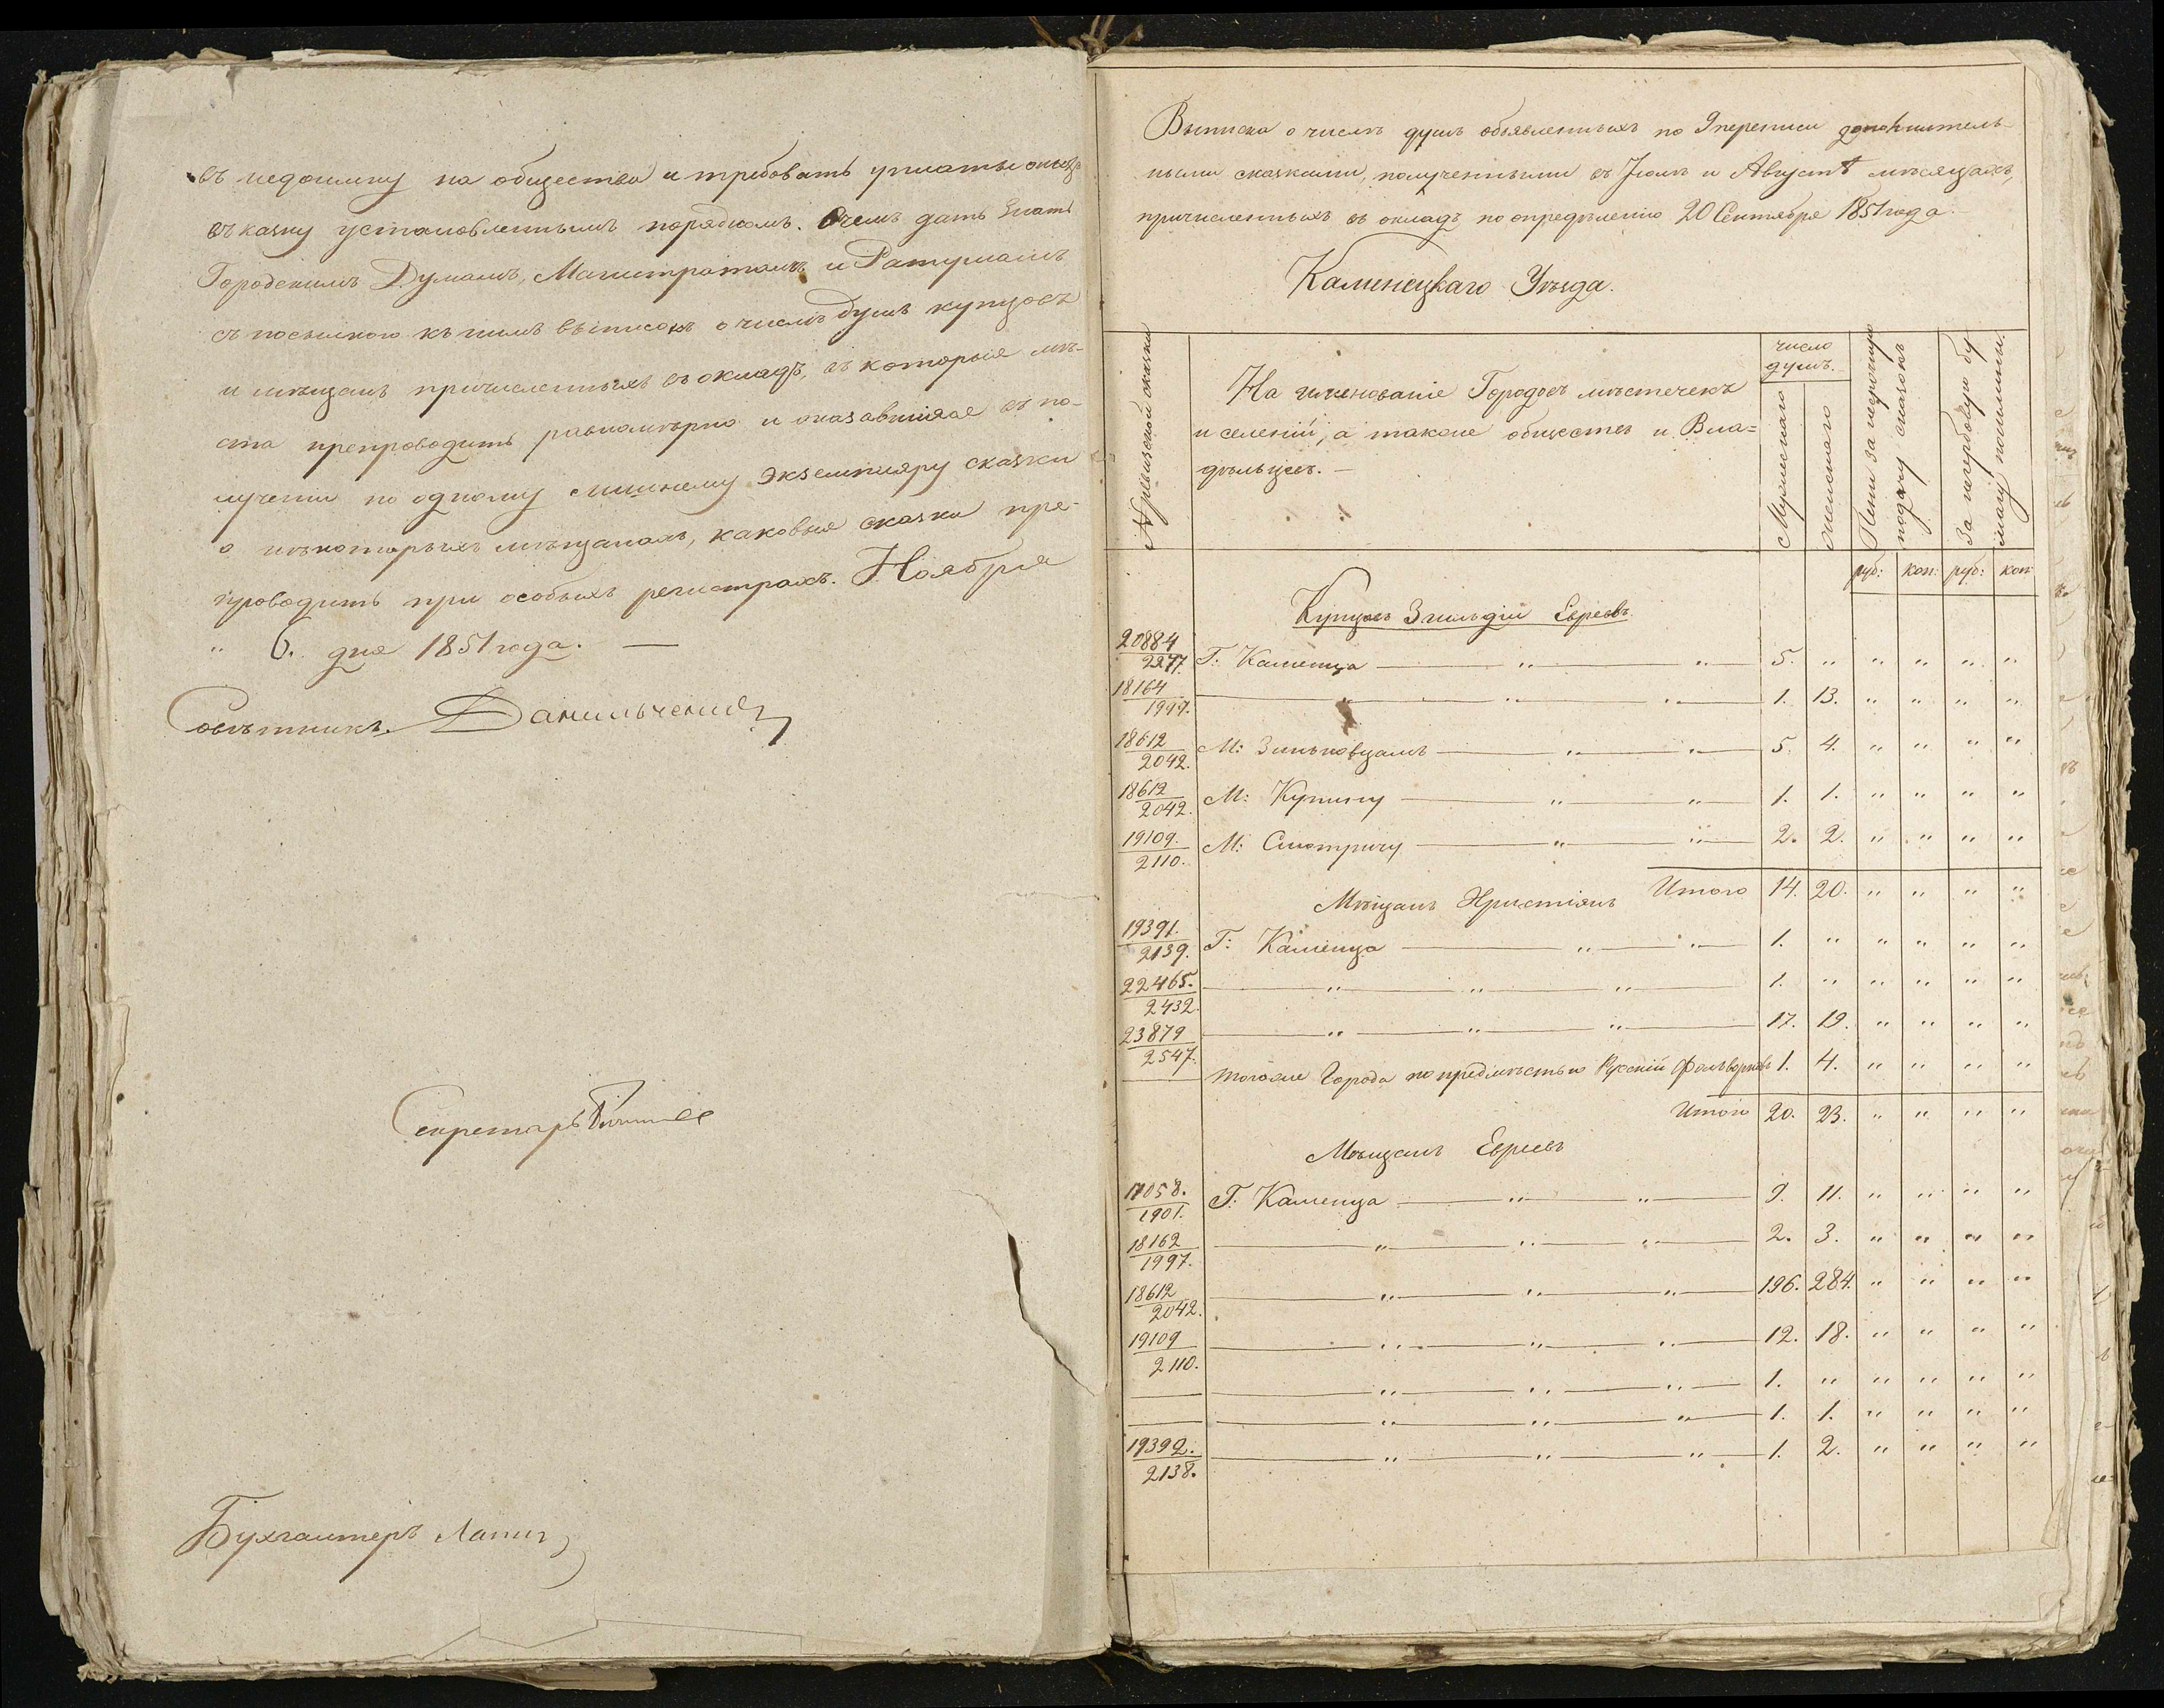 въ недоимку на общества и требовать уплаты оныхъ
въ казну установленнымъ порядкомъ. О чемъ дать знать
Городскимъ Думамъ, Магистратамъ и Ратушамъ
съ посылкою къ нимъ выписокъ о числѣ душъ купцовъ
и мѣщанъ причисленныхъ въ окладъ, въ которыя мѣ-
ста препроводить равномѣрно и оказавшіяся въ по-
лученіи по одному лишнему экземпляру сказки
о нѣкоторыхъ мѣщанахъ, каковыя сказки пре-
проводить при особыхъ регистрахъ. Ноября
" 6. дня 1851 года. —
Совѣтникъ Данильченко
Секретарь
Бухгалтеръ
Выписка о числѣ душъ объявленныхъ по 9 переписи дополнитель-
ными сказками, полученными въ Іюлѣ и Августѣ мѣсяцахъ,
причисленныхъ въ окладъ по опредѣленію 20 Сентября 1851 года.
Каменецкаго Уѣзда.
№ ревизской сказки
На именованіе Городовъ мѣстечекъ
и селеній, а также обществъ и Вла=
дѣльцевъ. —
число
душъ.
Мужескаго
женскаго
Пени за
подачу сказокъ
За гербовую бу
магу пошлины.
руб: коп: руб: коп:
Купцовъ 3 гильдіи Евреевъ
20884/2277. Г: Каменца — " — " — 5. " " " " "
18164/1997. — " — " — " — 1. 13. " " " "
18612/2042. М: Зиньковцамъ — " — " — 5. 4. " " " "
18612/2042. М: Купину — " — " — 1. 1. " " " "
19109./2110. М: Смотричу — " — " — 2. 2. " " " "
Итого 14. 20. " " " "
Мѣщанъ Христіянъ
19391./2139. Г: Каменца — " — " — 1. " " " " "
22465./2432. — " — " — " — 1. " " " " "
23879/2547. — " — " — " — 17. 19. " " " "
— тогоже Города по предмѣстью Рускій Фольверкъ 1. 4. " " " "
Итого 20. 23. " " " "
Мѣщанъ Евреевъ
17058./1901. Г: Каменца — " — " — 9. 11. " " " "
18162/1997. — " — " — " — 2. 3. " " " "
18612/2042. — " — " — " — 196. 284. " " " "
19109/2110. — " — " — " — 12. 18. " " " "
— — " — " — " — 1. " " " " "
— — " — " — " — 1. 1. " " " "
19392./2138. — " — " — " — 1. 2. " " " "